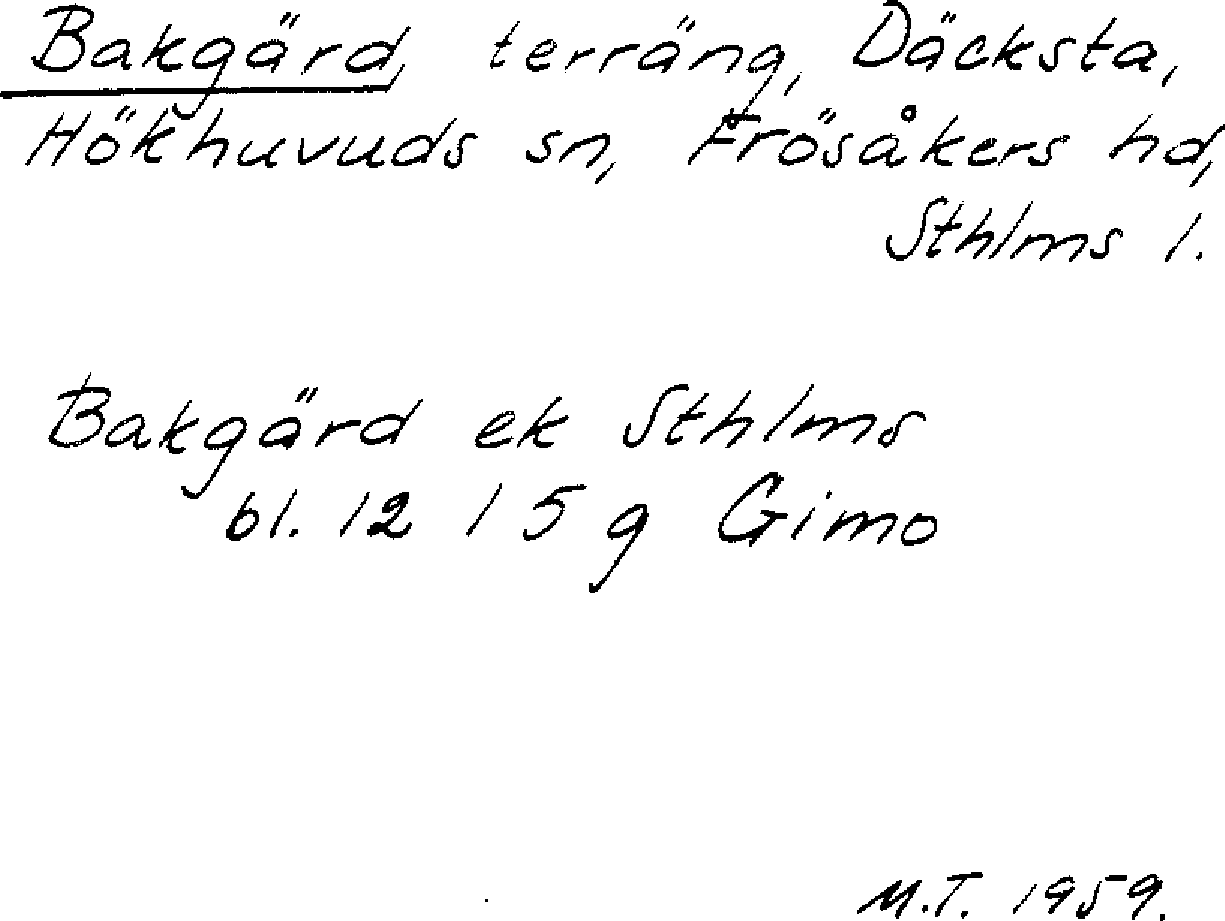 Bakgärd, terräng, Däcksta,
Hökhuvuds sn, Frösåkers hd,
Sthlms l.
Bakgärd ek Sthlms
bl. 12 I 5 g Gimo
M.T. 1959.